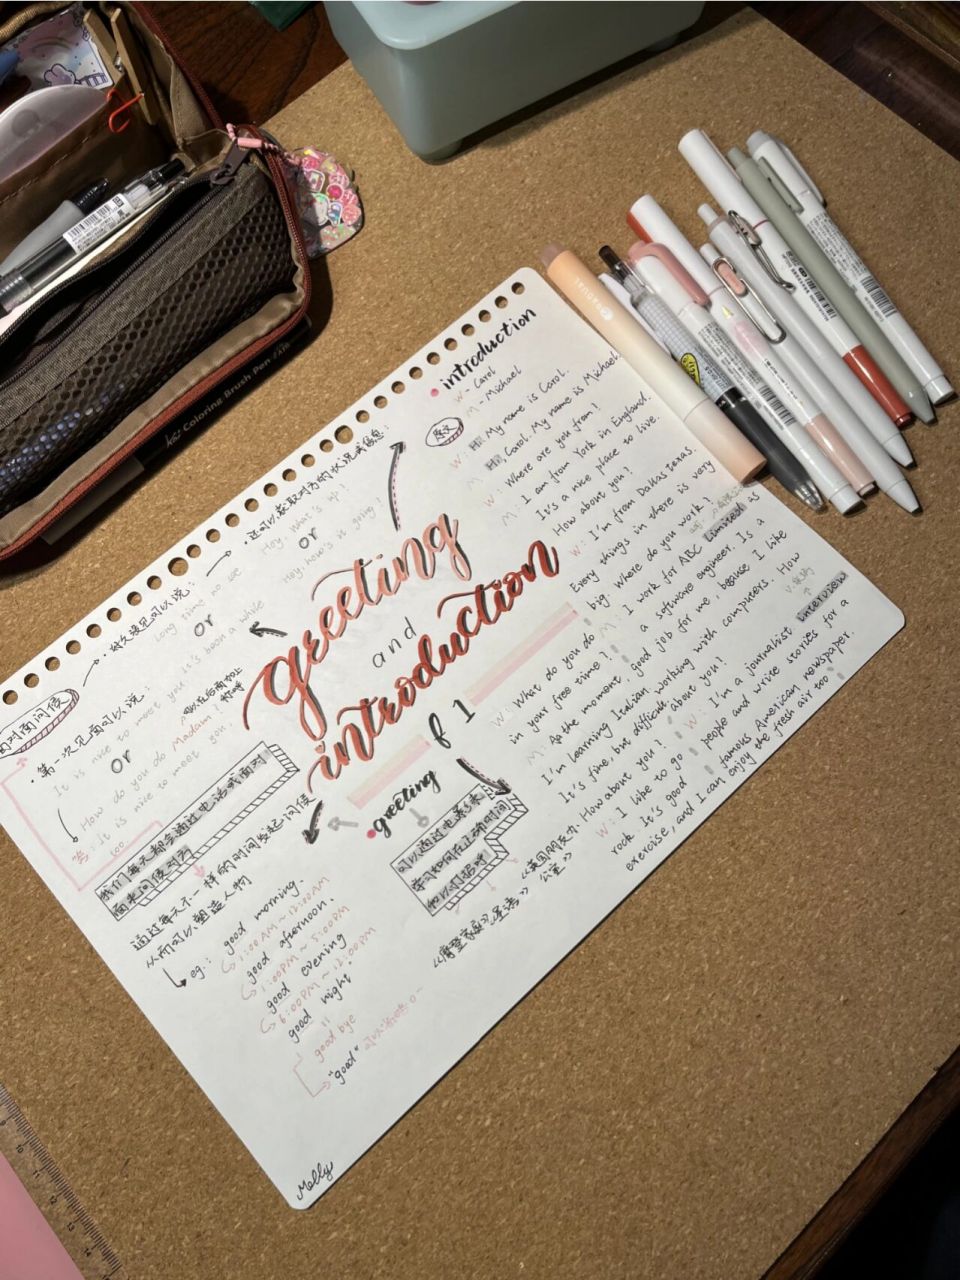 Coloring Brush Pen
introduction
W - Carol
M - Michael
原文
W: Hi. My name is Carol.
M: Hi, Carol. My name is Michael.
W: Where are you from?
M: I am from York in England.
It's a nice place to live.
How about you?
W: I'm from Dallas Texas.
Every things in there is very
big. Where do you work?
M: I work for ABC Limited as
a software engineer. Is a
good job for me, because I like
working with computers. How
about you?
W: I'm a journalist interview
people and write stories for a
famous American newspaper.
W: What do you do
in your free time?
M: At the moment,
I'm learning Italian.
It's fine, but difficult.
How about you?
W: I like to go
rock. It's good
exercise, and I can enjoy the fresh air too
greeting
and
introduction
of 1
greeting
面对面问候
好久没见可以说:
Long time no see
or
it's been a while
还可以卖取对方的状况或信息:
Hey, What's up?
or
Hey, how's it going?
第一次见面可以说:
It is nice to meet you
or
How do you do
答: It is nice to meet you.
Madam
我们每天都会通过电话或面对
面来问候对方
通过每天不一样的时间发起问候
从而可以塑造人物
eg.: good morning.
1:00AM ~ 12:00AM
good afternoon.
1:00PM ~ 5:00PM
good evening
6:00PM ~ 12:00PM
good night
good bye
"good"
可以通过电影多来
学习如何在正确时间
和以打招呼
《摩登家庭》
《英国朋友
公室》
Molly